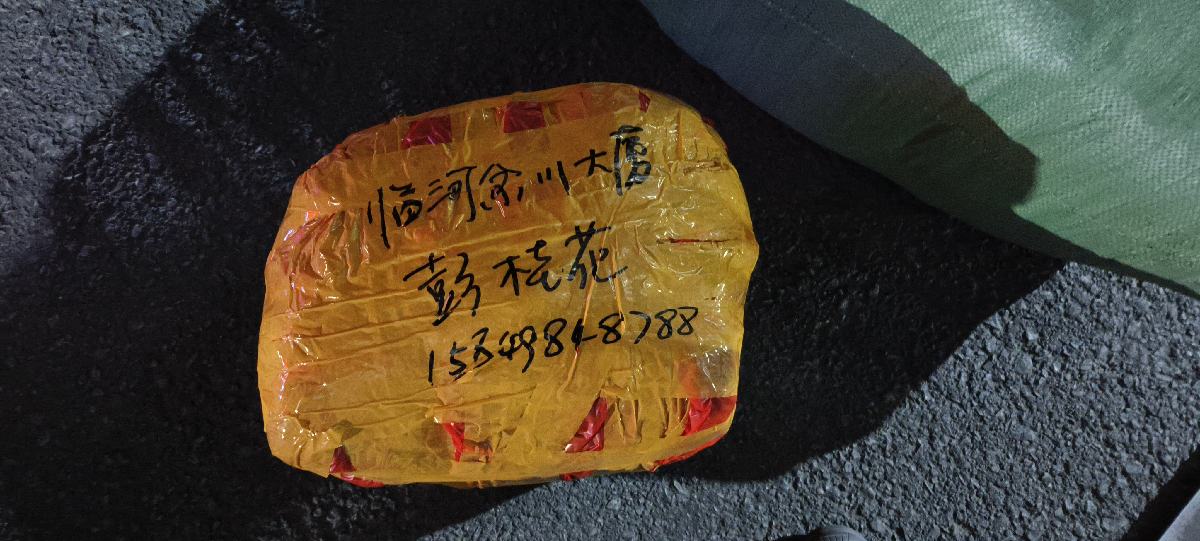 临河金川大厦
彭桂花
15849848788